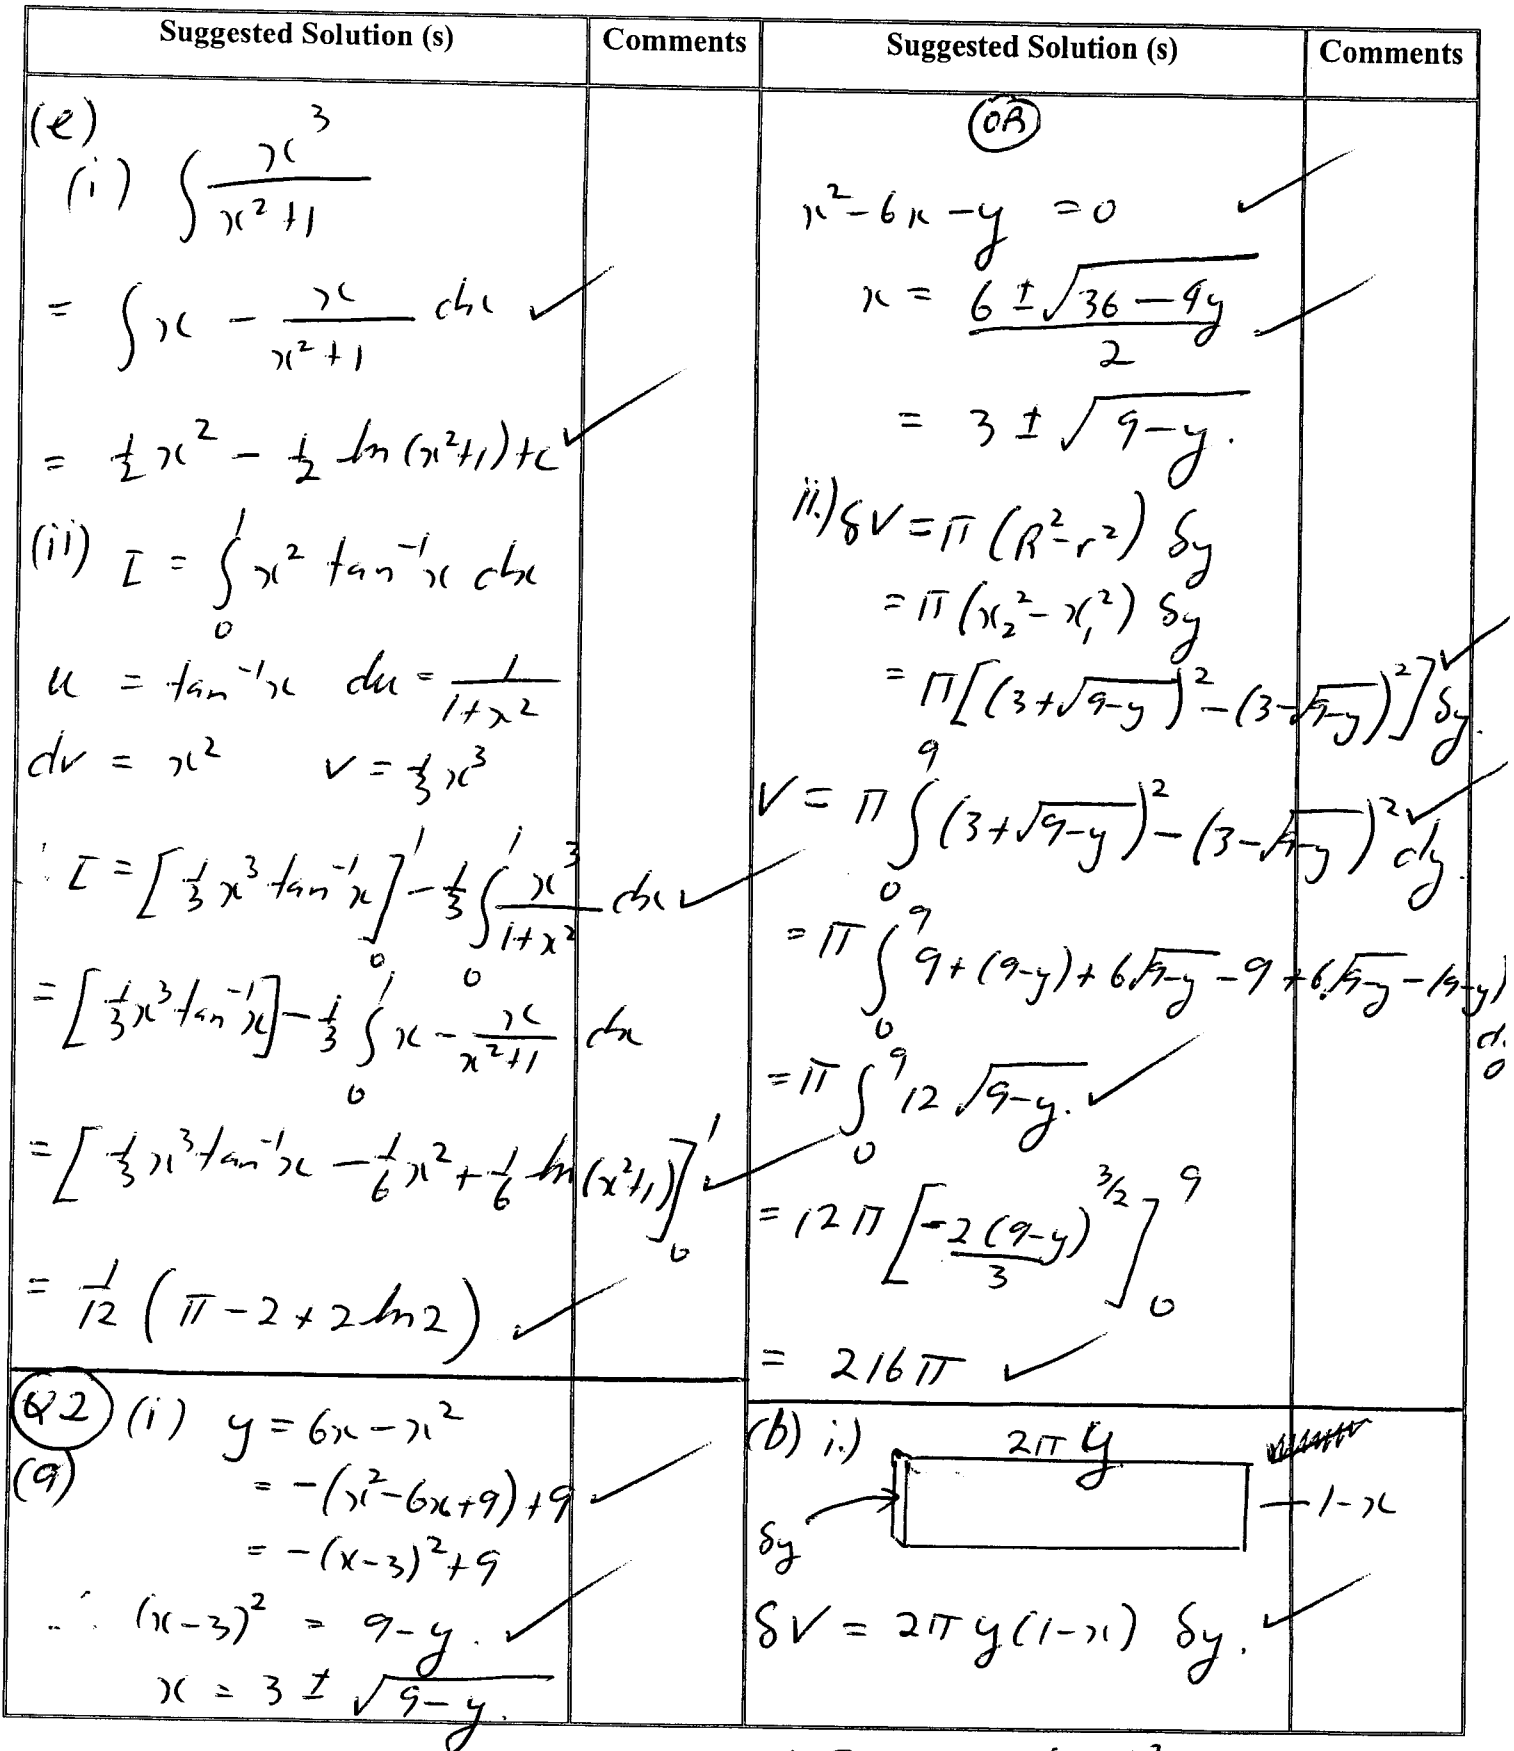 Suggested Solution (s) Comments
(e)
(i) ∫ x³/(x²+1)
= ∫ x - x/(x²+1) dx ✓
= ½x² - ½ ln(x²+1)+c ✓
(ii) I = ∫₀¹ x² tan⁻¹x dx
u = tan⁻¹x du = 1/(1+x²)
dv = x² v = ⅓x³
∴ I = [⅓x³ tan⁻¹x]₀¹ - ⅓∫₀¹ x³/(1+x²) dx ✓
= [⅓x³ tan⁻¹x] - ⅓∫₀¹ x - x/(x²+1) dx
= [⅓x³ tan⁻¹x - ⅙x² + ⅙ ln(x²+1)]₀¹ ✓
= 1/12 (π - 2 + 2 ln 2) ✓
Q2 (i) y = 6x - x²
(a) = -(x²-6x+9)+9 ✓
= -(x-3)²+9
∴ (x-3)² = 9-y. ✓
x = 3 ± √(9-y).
Suggested Solution (s) Comments
OR
x²-6x-y = 0 ✓
x = (6 ± √(36-4y))/2 ✓
= 3 ± √(9-y).
ii.) δV = π(R²-r²) δy
= π(x₂²-x₁²) δy
= π[(3+√(9-y))²-(3-√(9-y))²] δy. ✓
V = π∫₀⁹ (3+√(9-y))²-(3-√(9-y))² dy. ✓
= π∫₀⁹ 9+(9-y)+6√(9-y)-9+6√(9-y)-(9-y)
= π∫₀⁹ 12√(9-y). ✓
= 12π[-2(9-y)^(3/2)/3]₀⁹
= 216π ✓
(b) i.) 2πy
1-x
δy
δV = 2πy(1-x) δy. ✓